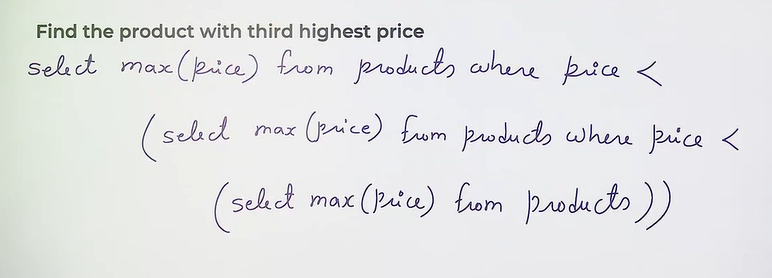 Find the product with third highest price
select max(price) from products where price <
(select max(price) from products where price <
(select max(price) from products))